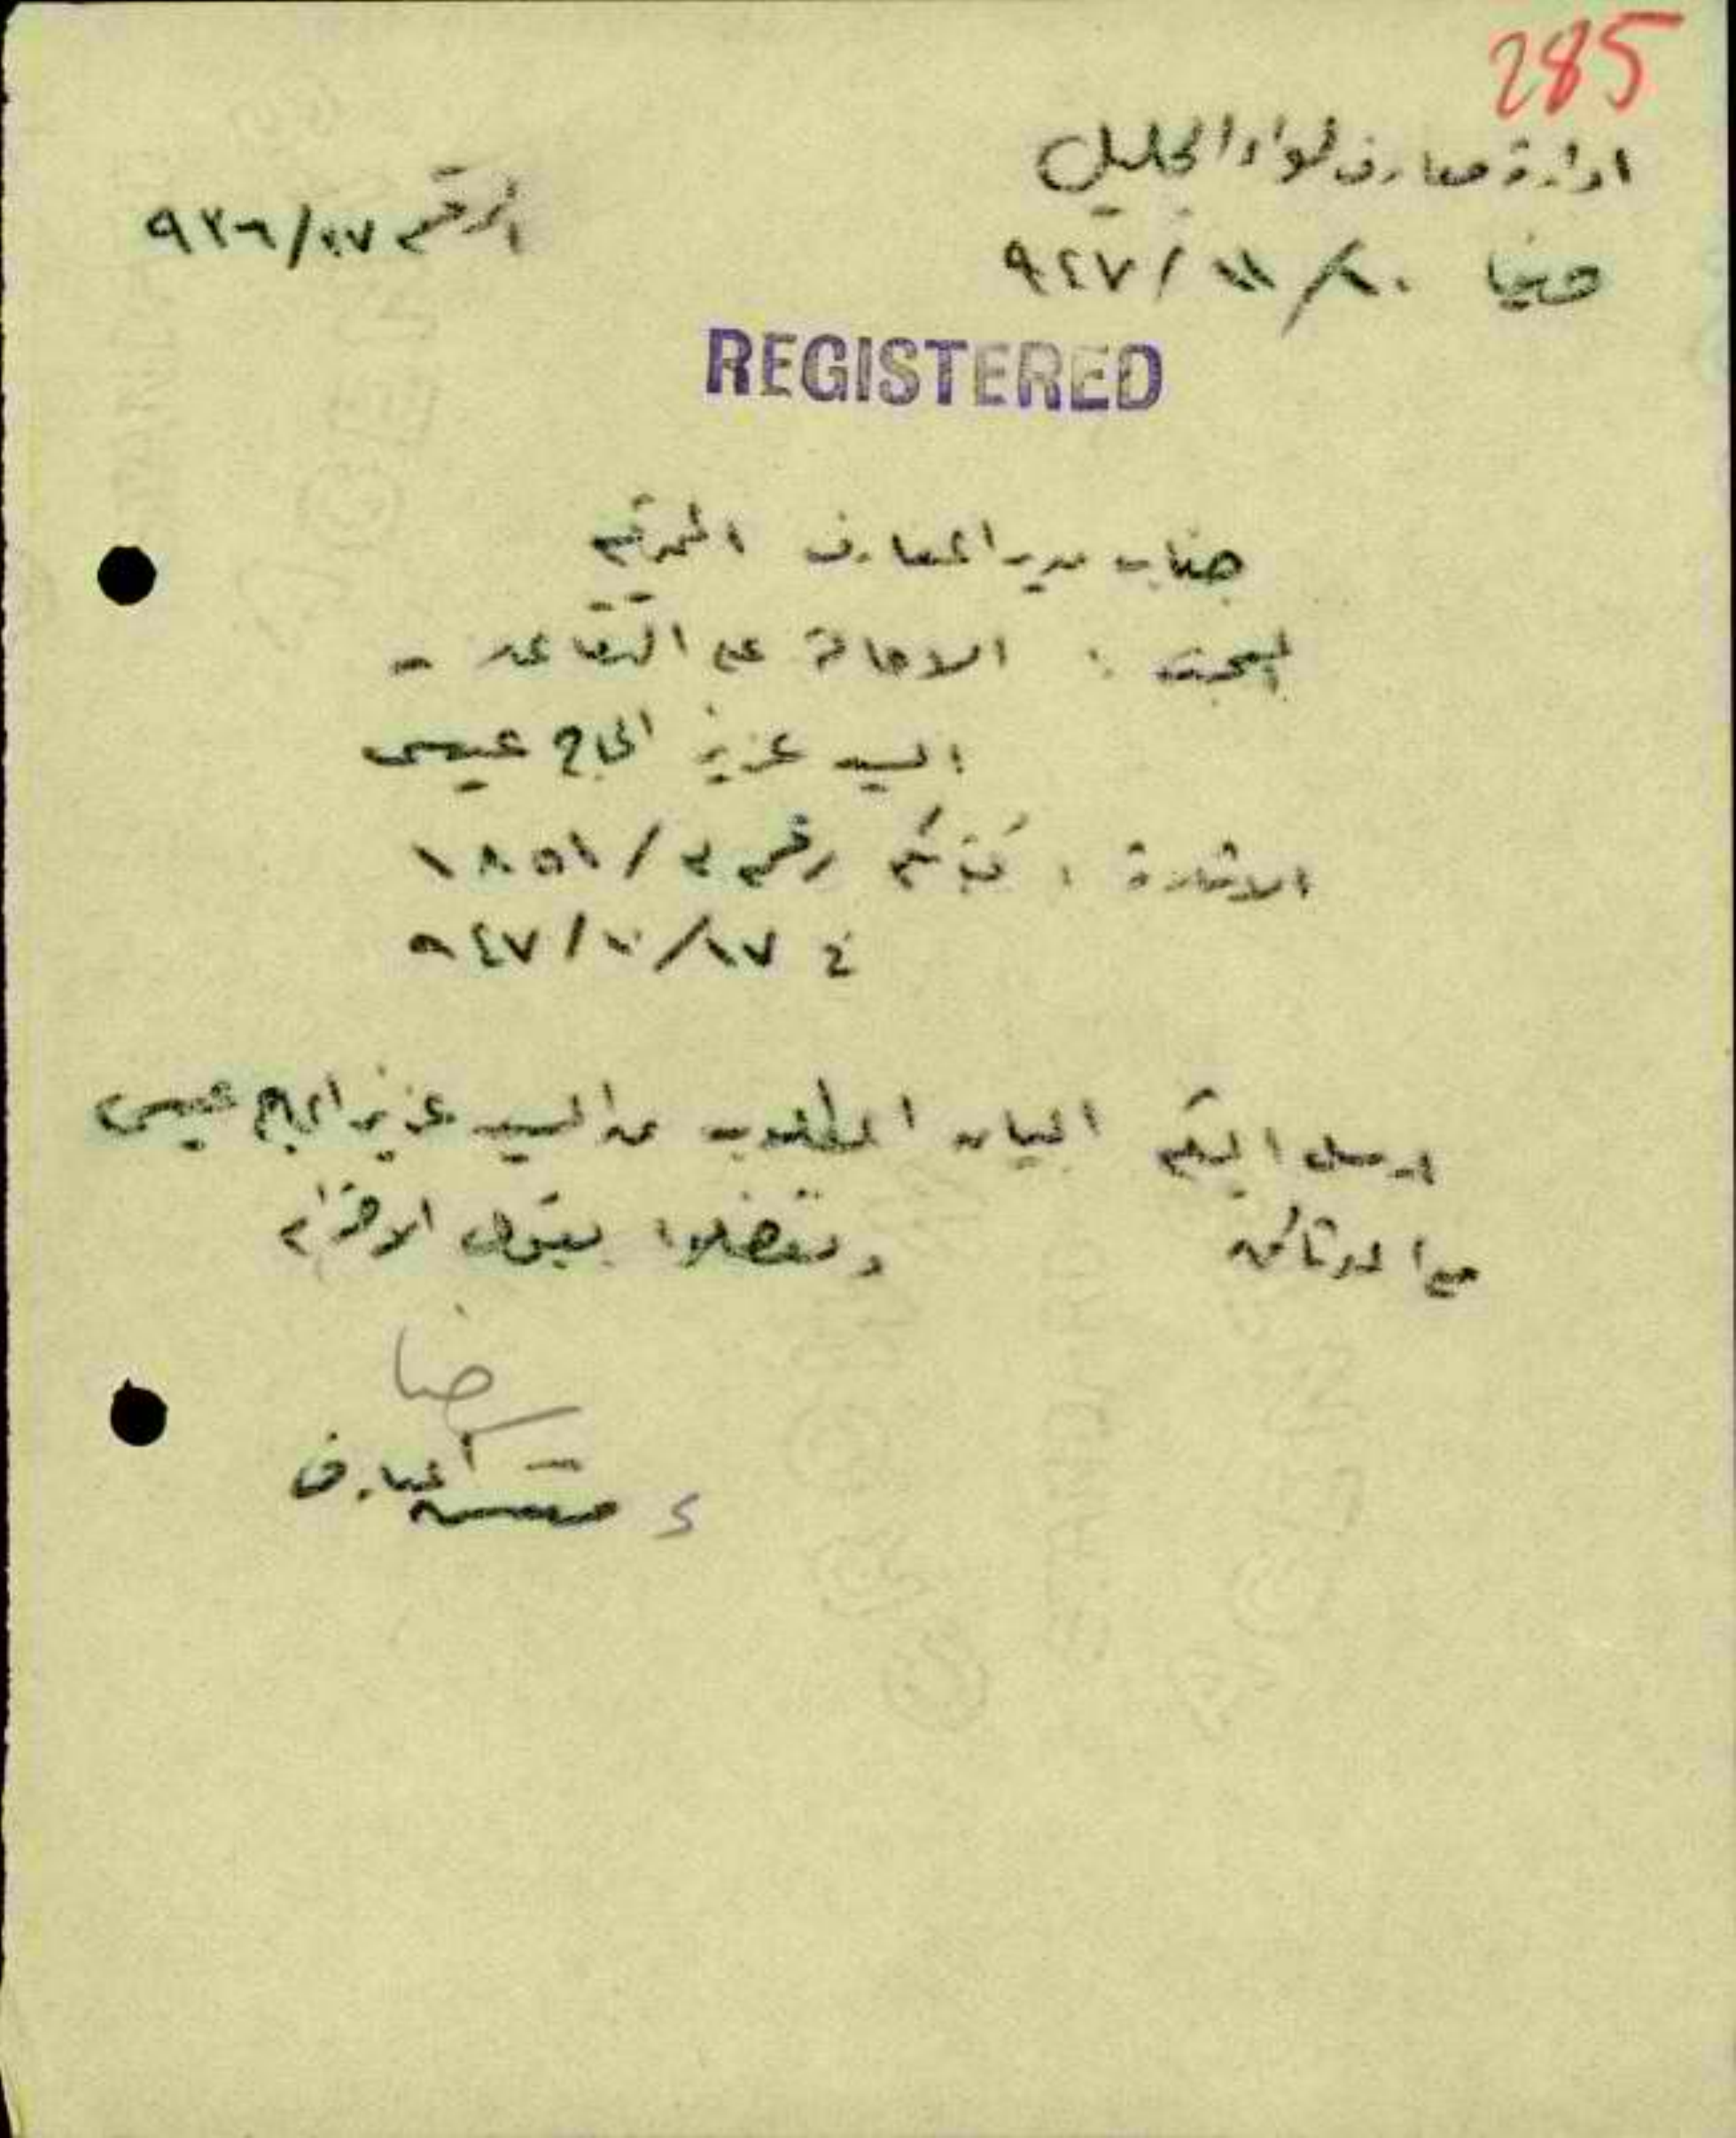 285
ادارة معارف لواء الجليل
حيفا ١٠/١١/٩٤٧
الرقم ٩٣٦/٢٧
REGISTERED
جناب مدير المعارف المحترم
البحث : الاحالة على التقاعد -
السيد عزيز الحاج عيسى
الاشارة : كتابكم رقم م/١٨٥١
في ١٧/١٠/٩٤٧
ارسل اليكم البيان المطلوب من السيد عزيز الحاج عيسى
مع الوثائق وتفضلوا بقبول الاحترام
رضا
مفتش المعارف